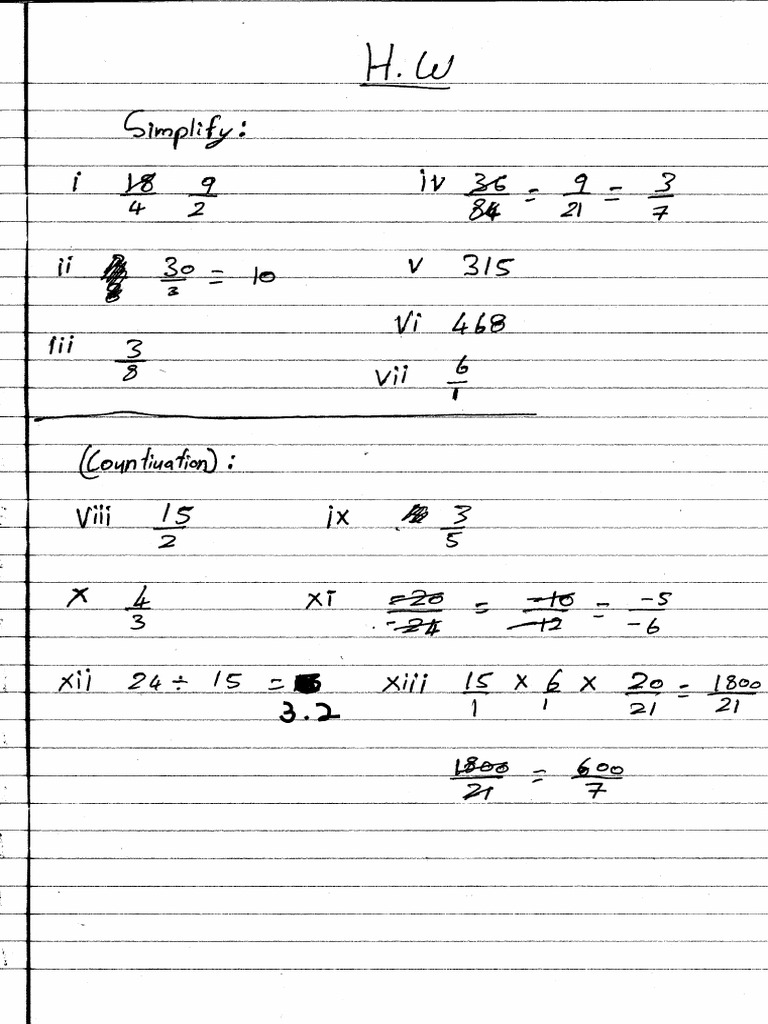 H.W
Simplify:
i 18/4 9/2
iv 36/84 = 9/21 = 3/7
ii 30/3 = 10
v 315
vi 468
iii 3/8
vii 6/1
(Countiuation):
viii 15/2
ix 3/5
x 4/3
xi -20/-24 = -10/-12 = -5/-6
xii 24 ÷ 15 = 3.2
xiii 15/1 × 6/1 × 20/21 = 1800/21
1800/21 = 600/7